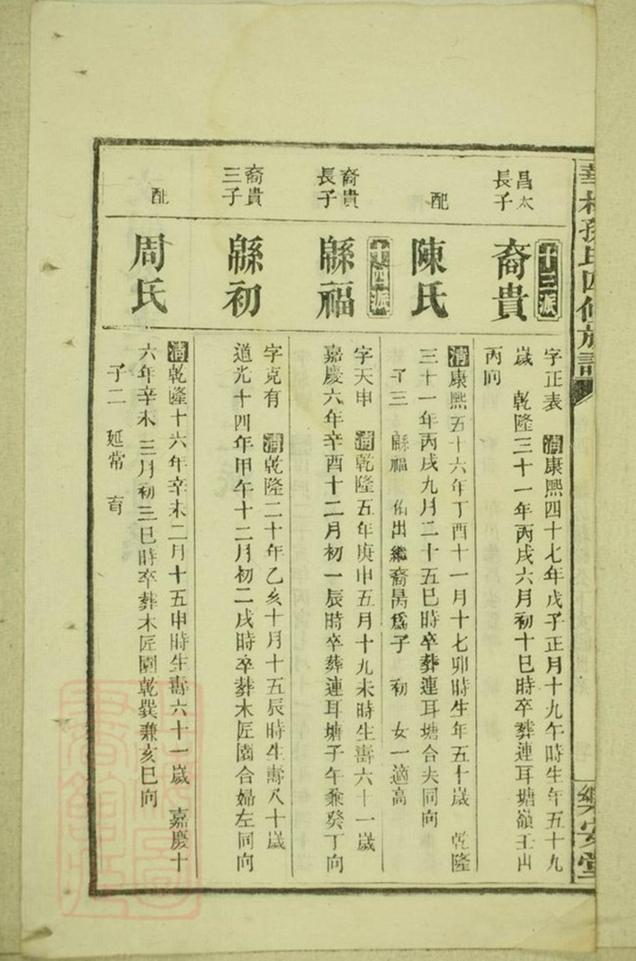 華林孫氏四修族譜
樂安堂
昌太
長子
十三派
裔貴
字正表 清康熙四十七年戊子正月十九午時生年五十九
歲 乾隆三十一年丙戌六月初十巳時卒葬連耳塘嶺壬山
丙向
配
陳氏
清康熙五十六年丁酉十一月十七卯時生年五十歲 乾隆
三十一年丙戌九月二十五巳時卒葬連耳塘合夫同向
子三 縣福 出繼裔昺爲子 初 女一適高
裔貴
長子
十四派
縣福
字天申 清乾隆五年庚申五月十九未時生壽六十一歲
嘉慶六年辛酉十二月初一辰時卒葬連耳塘子午兼癸丁向
裔貴
三子
縣初
字克有 清乾隆二十年乙亥十月十五辰時生壽八十歲
道光十四年甲午十二月初二戌時卒葬木匠園合婦左同向
配
周氏
清乾隆十六年辛未二月十五申時生壽六十一歲 嘉慶十
六年辛未三月初三巳時卒葬木匠園乾巽兼亥巳向
子二 延常 育